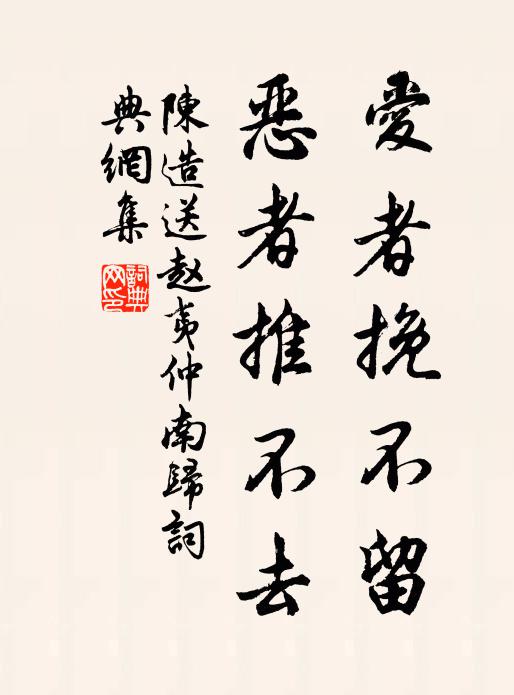 愛者挽不留
惡者推不去
陳造送赵夷仲南歸詞
典網集
詞典网印